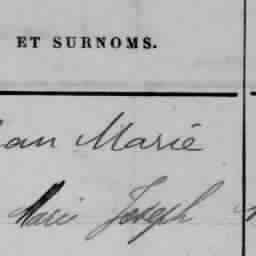 ET SURNOMS.
ean Marie
Marie Joseph